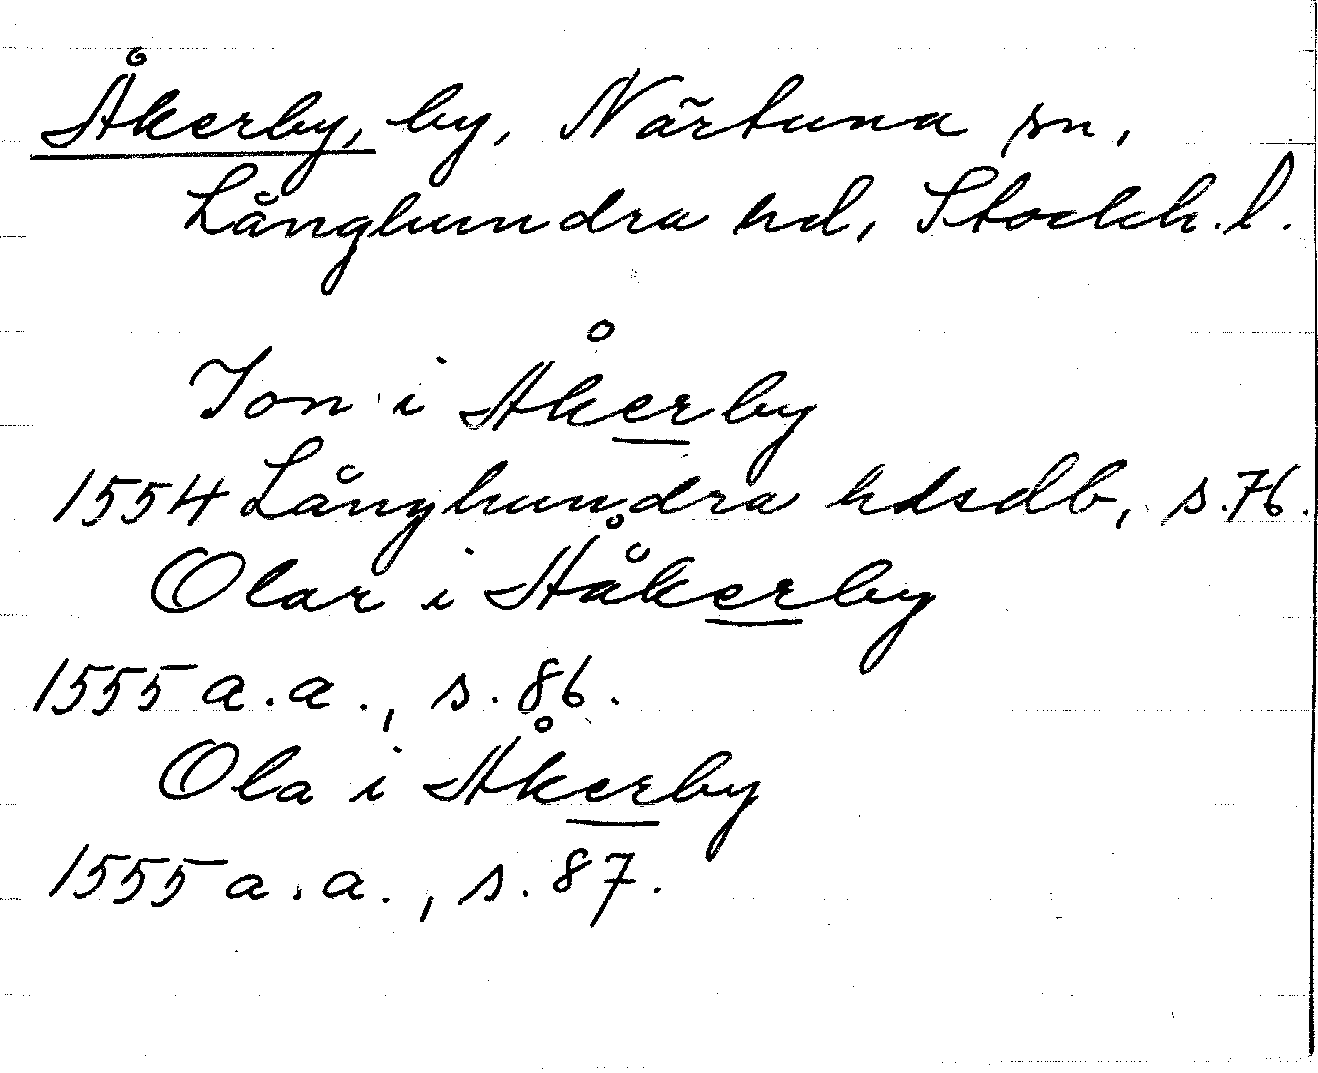 Åkerby, by, Närtuna sn,
Långhundra hd, Stockh. l.
Jon i Åkerby
1554 Långhundra hdsdb, s. 76.
Olar i Ååkerby
1555 a.a., s. 86.
Ola i Åkerby
1555 a.a., s. 87.